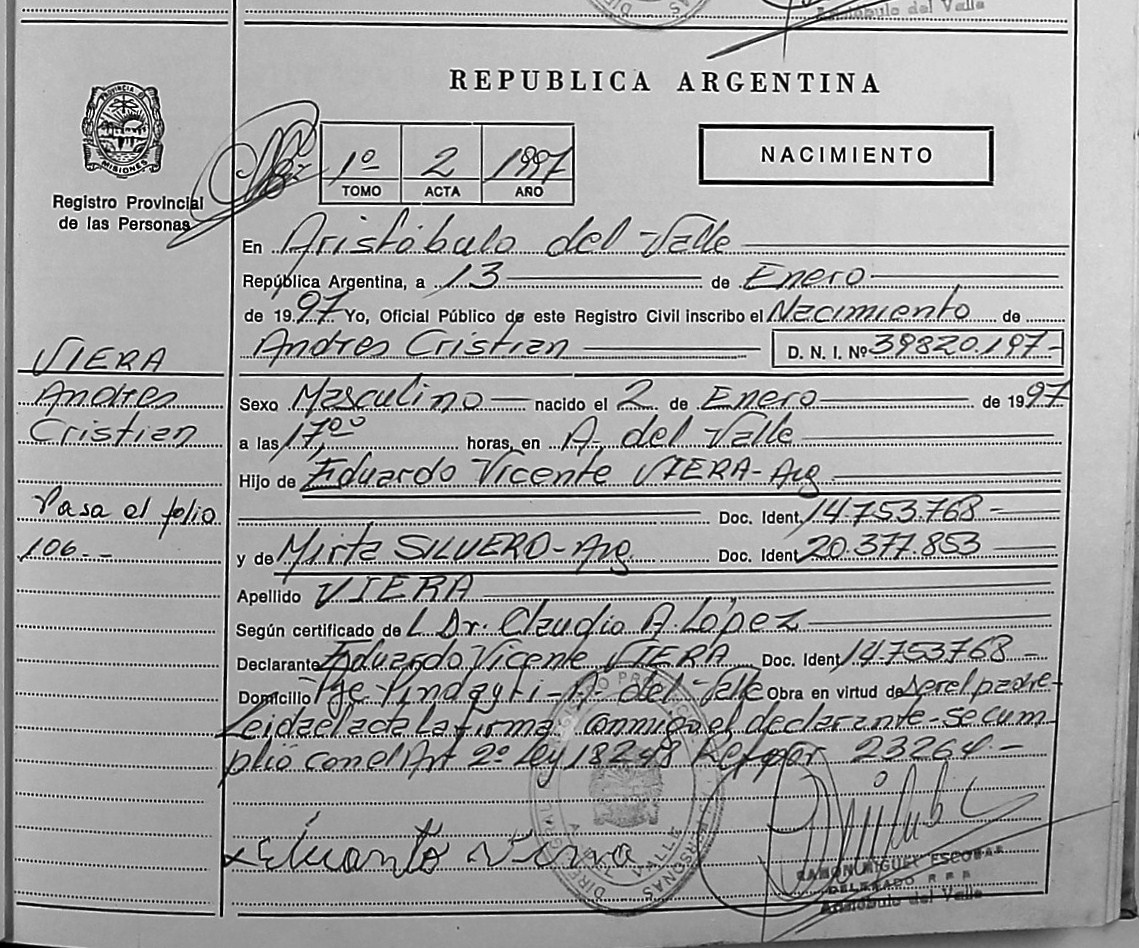 Aristóbulo del Valle
REPUBLICA ARGENTINA
PROVINCIA DE
MISIONES
Registro Provincial
de las Personas
1º 2 1997
TOMO ACTA AÑO
NACIMIENTO
En Aristóbulo del Valle
República Argentina, a 13 de Enero
de 1997 Yo, Oficial Público de este Registro Civil inscribo el Nacimiento de
Andres Cristian D. N. I. Nº 39820.197-
VIERA
Andres
Cristian
Pasa al folio
106.--
Sexo Masculino nacido el 2 de Enero de 1997
a las 17,00 horas, en A. del Valle
Hijo de Eduardo Vicente VIERA- Arg
Doc. Ident. 14.753.768-
y de Mirta SILVERO- Arg. Doc. Ident. 20.377.853
Apellido VIERA
Según certificado de L Dr. Claudio A. López
Declarante Eduardo Vicente VIERA Doc. Ident. 14.753768-
Domicilio Pje Pindayti- A. del Valle Obra en virtud de ser el padre-
Leida el acta la firma conmigo el declarante-se cum
plió con el Art 2º Ley 18248 Ref por 23264.-
RAMON MIGUEL ESCOBAR
DELEGADO R P P
Aristóbulo del Valle